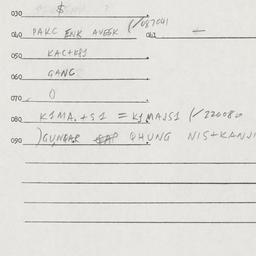 030 $
040 PAKC ENK AVEEK (/087041 041
050 KAC++K81
060 GANG
070 0
080 K1MA.+S1 = K1MAJS1 (/220080
090 )GUNGAR QHUNG NIS+KANJI